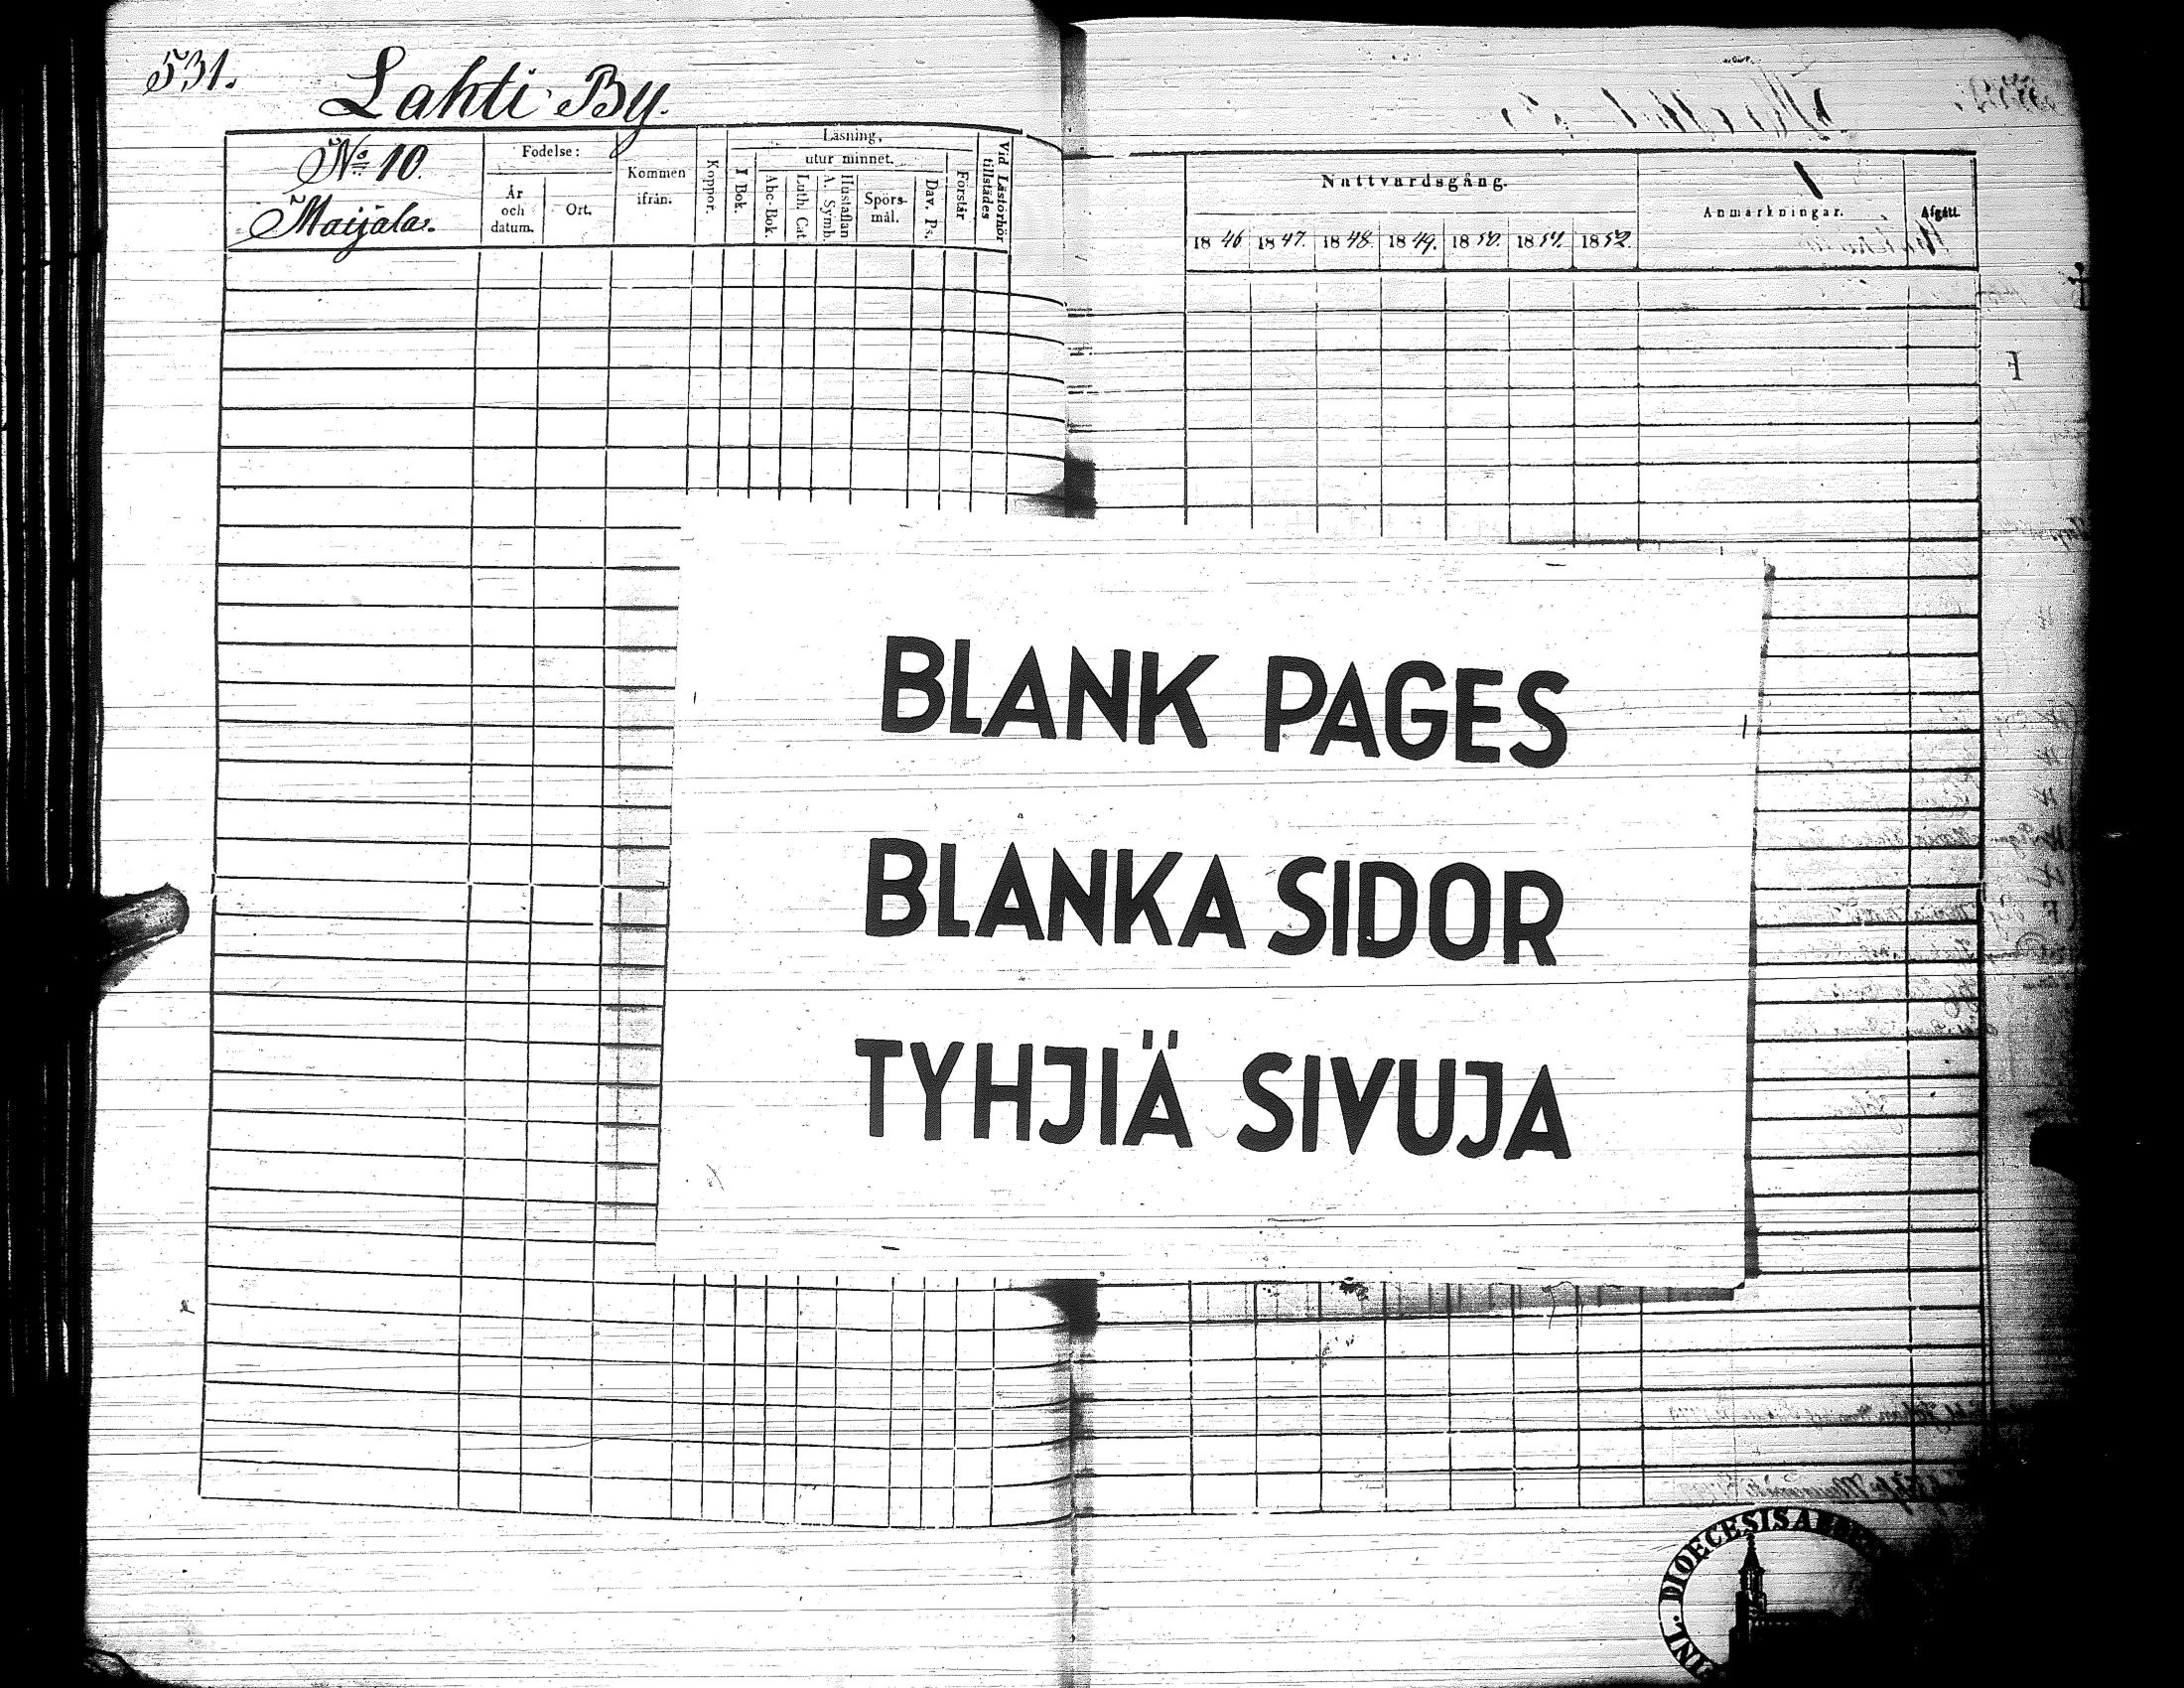 531.
Lahti By.
No 10.
Maijala.
Födelse:
År och datum.
Ort.
Kommen ifrån.
Koppor.
Läsning,
utur minnet.
I Bok.
Abc-Bok.
Luth. Cat.
A. Symb.
Hustaflan
Spörs-
mål.
Dav. Ps.
Förstår
Vid Läsförhör
tillstädes
Nattvardsgång.
1846 1847. 1848. 1849. 1850. 1851. 1852.
Anmärkningar.
Afgått.
BLANK PAGES
BLANKA SIDOR
TYHJIÄ SIVUJA
DIOECESIS